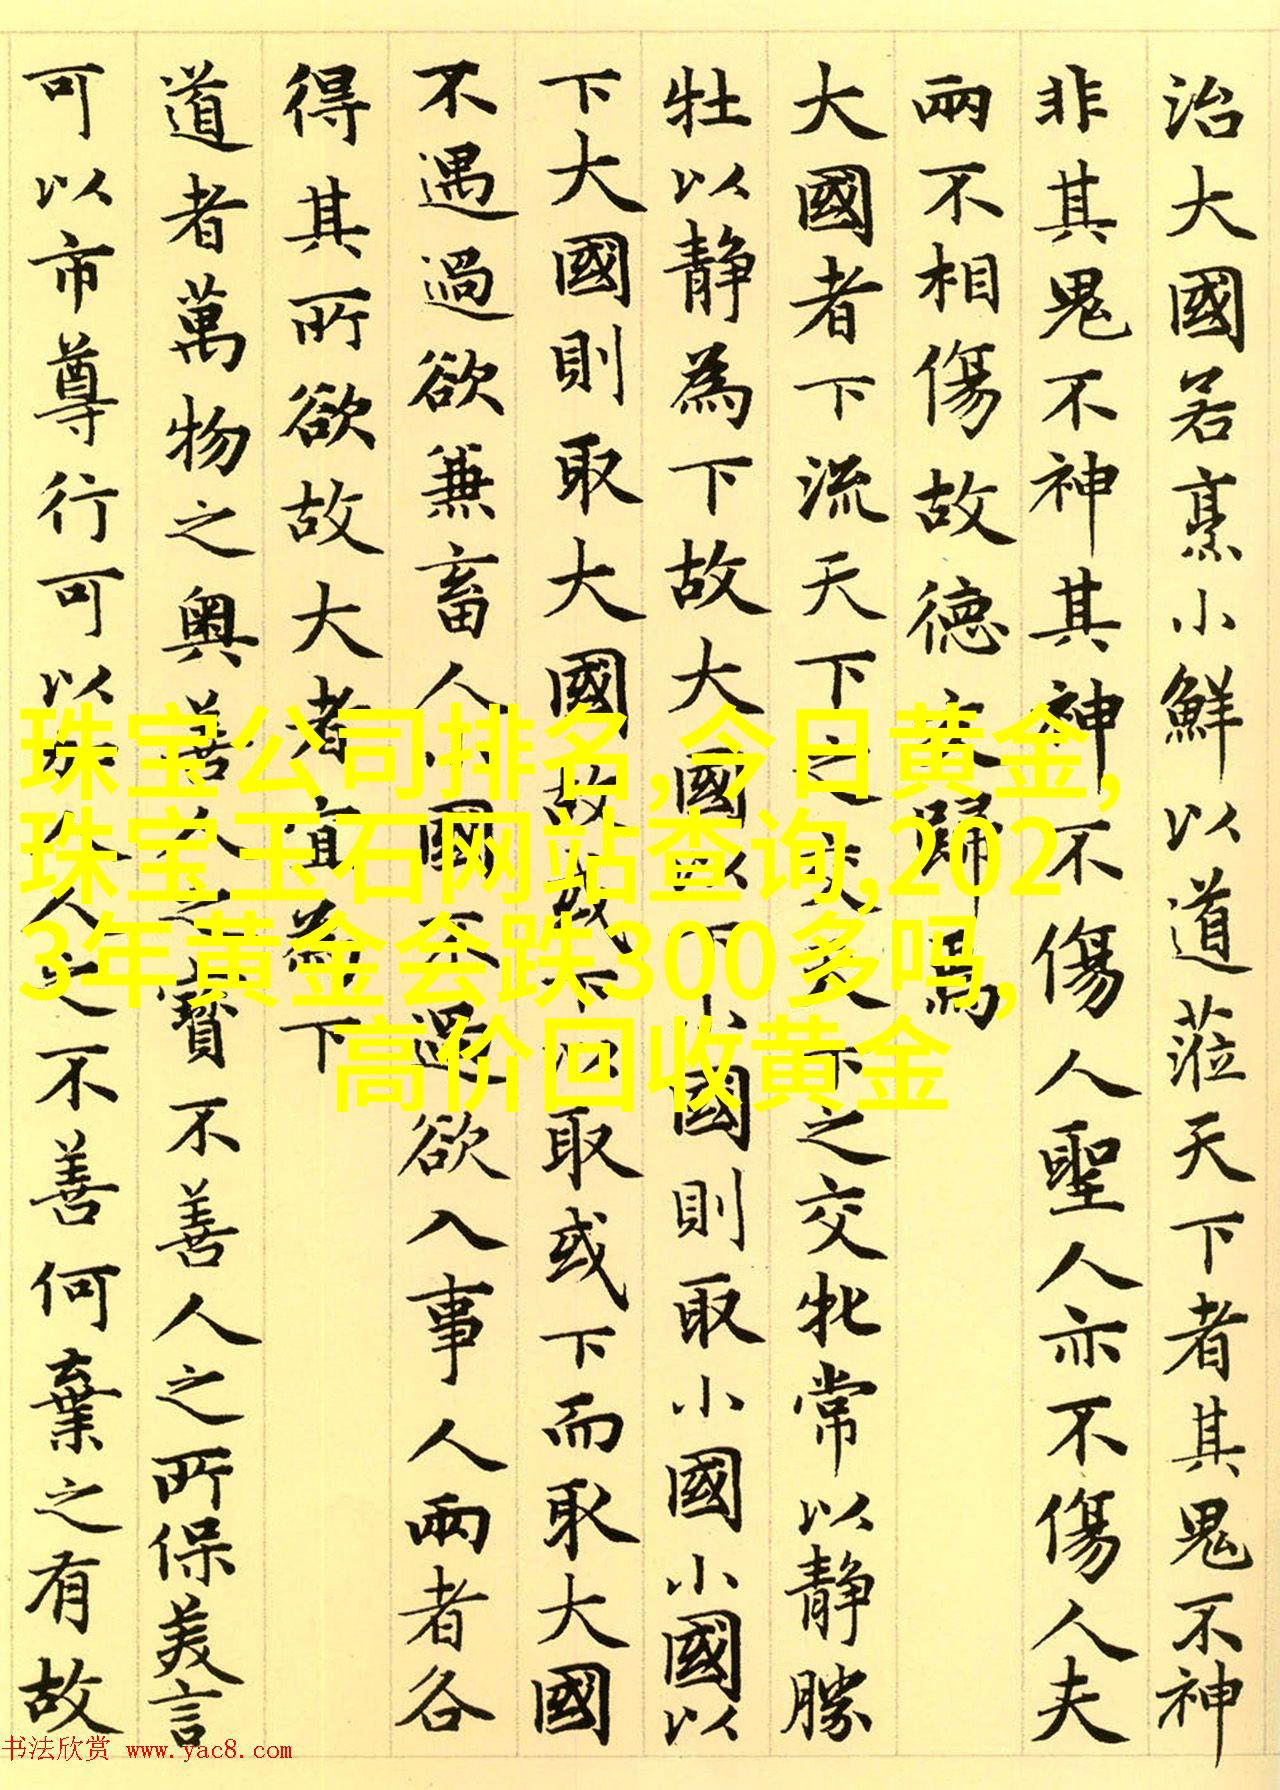 治大國若烹小鮮以道蒞天下者其鬼不神
非其鬼不神其神不傷人聖人亦不傷人夫
兩不相傷故德交歸焉
大國者下流天下之交天下之交牝常以靜勝
牡以靜為下故大國以下小國則取小國小國以
下大國則取大國故或下以取或下而取大國
不遇過欲兼畜人小國不過欲入事人兩者各
得其所欲故大者宜為下
道者萬物之奧善人之寶不善人之所保美言
可以市尊行可以加人人之不善何棄之有故
珠宝公司排名,今日黄金,
珠宝玉石网站查询,202
3年黄金会跌300多吗,
高价回收黄金
书法欣赏 www.yac8.com